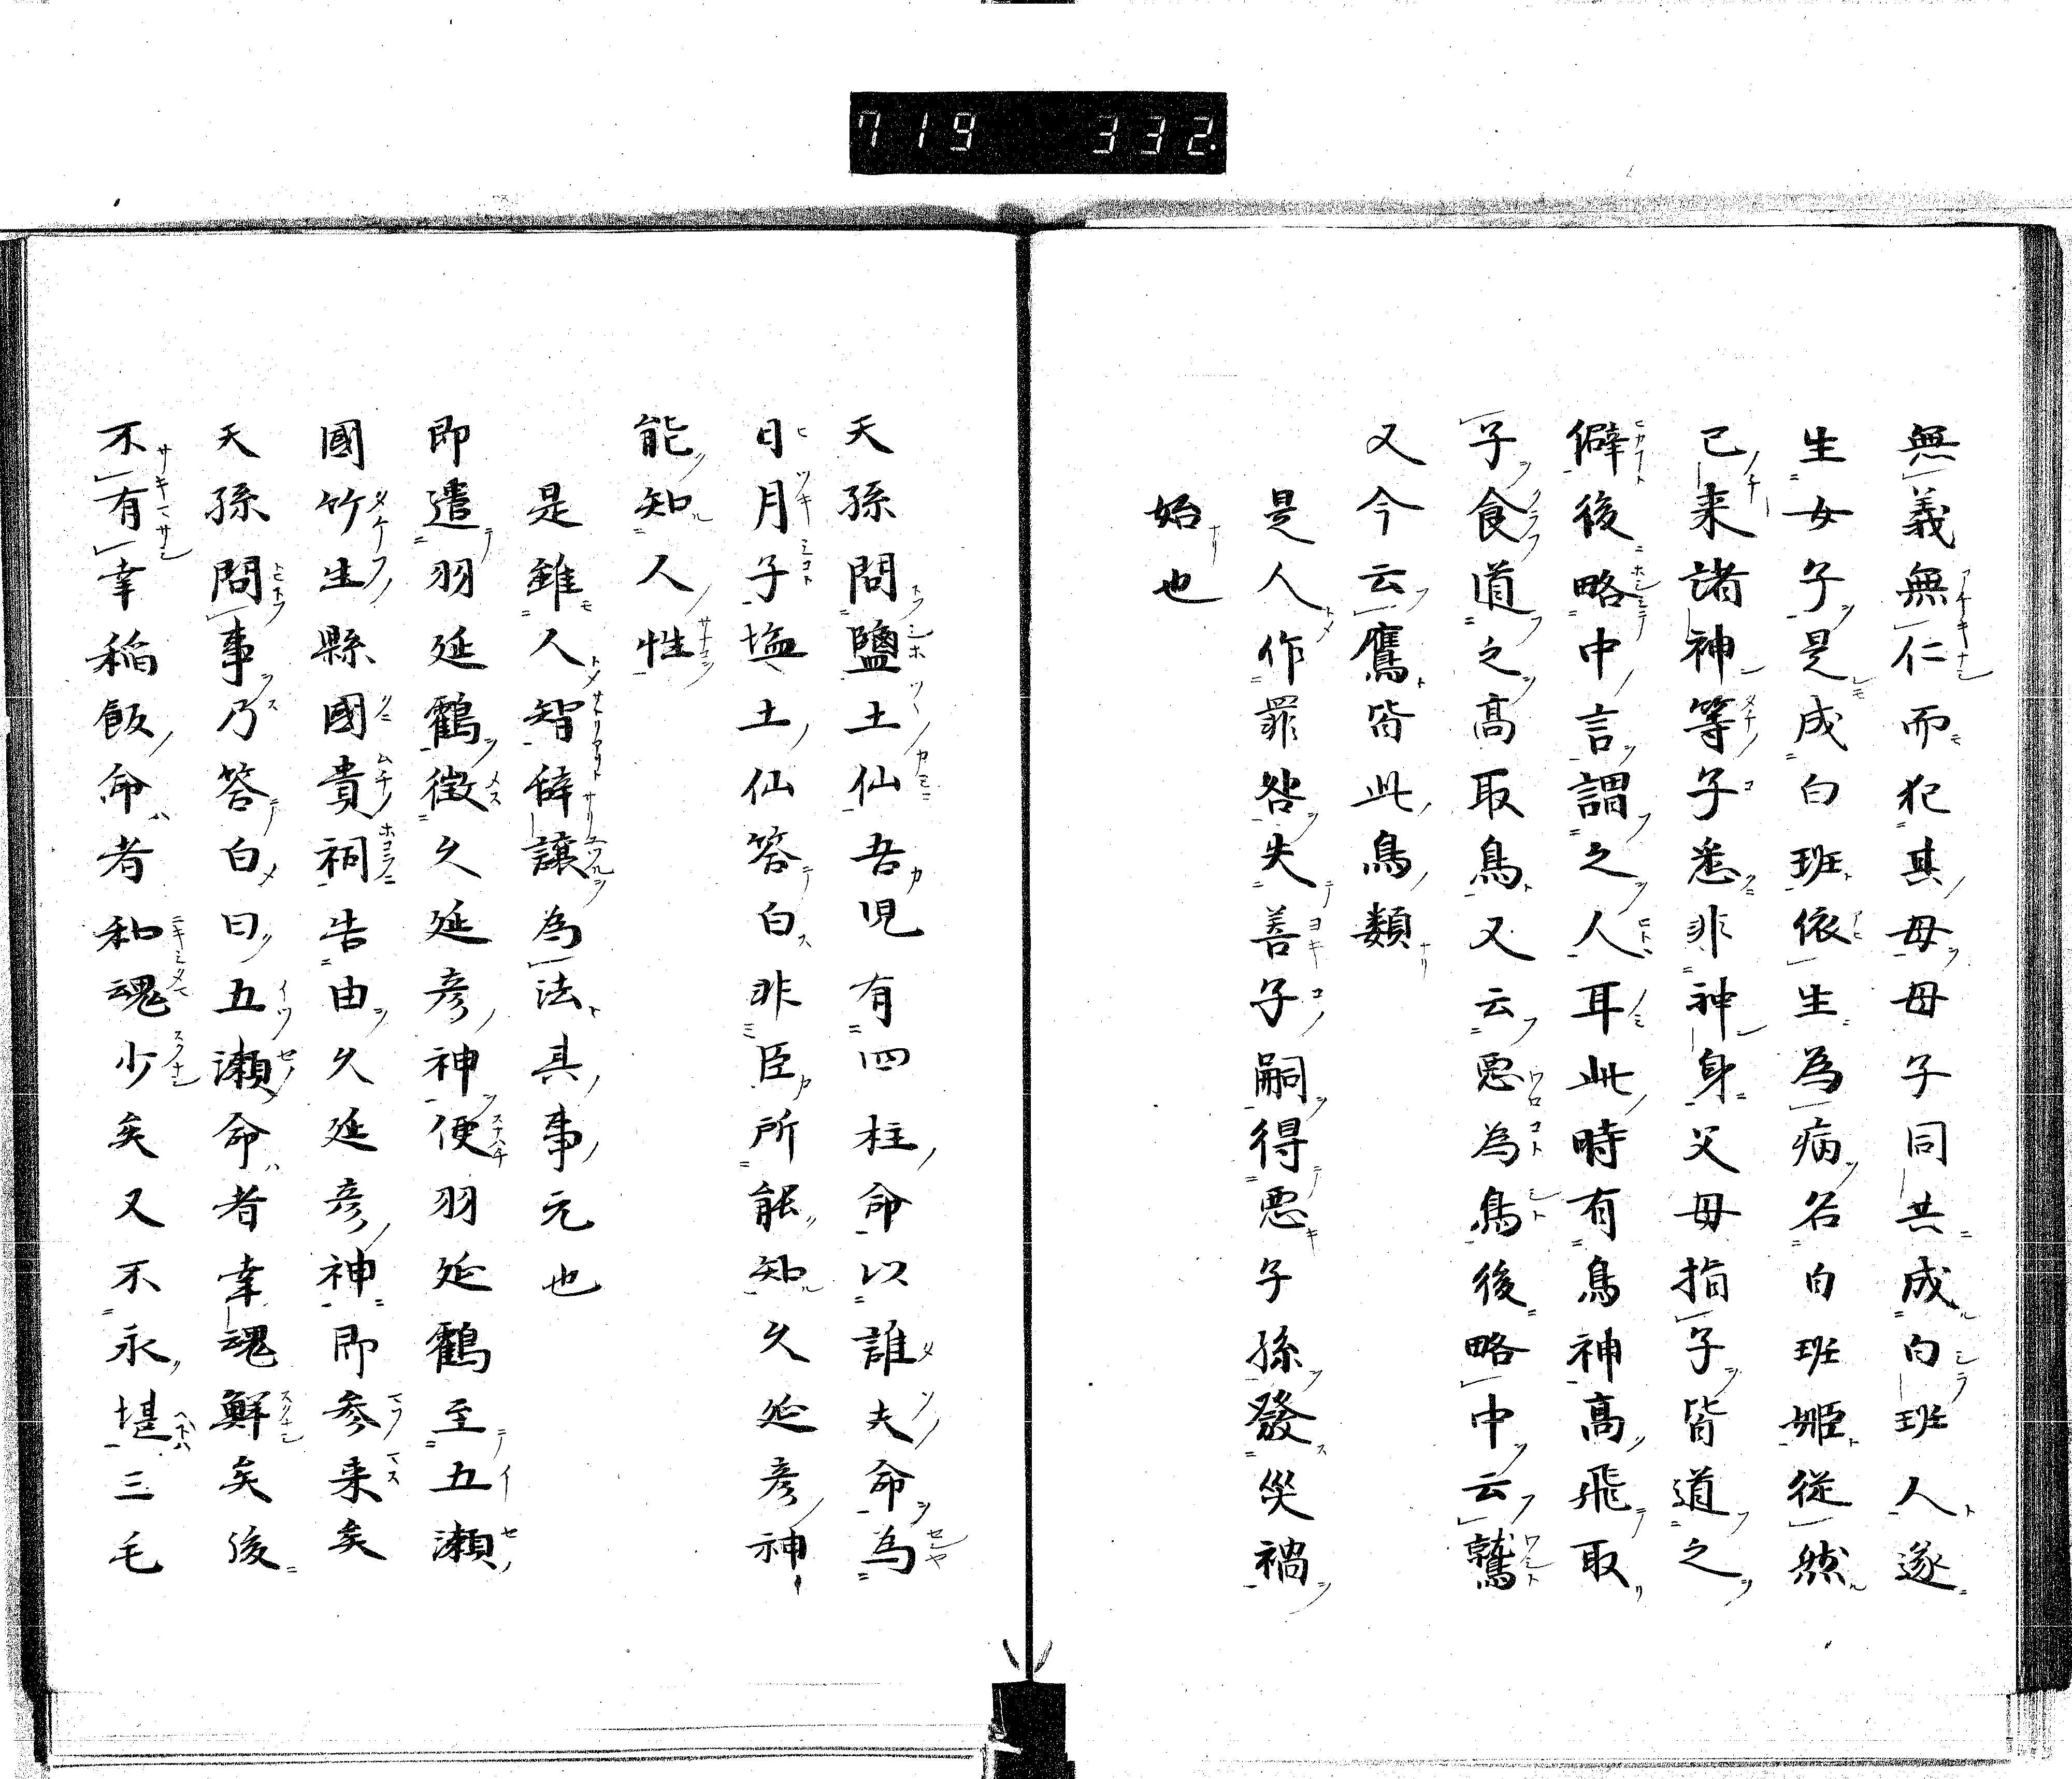 719 332.
無義無仁而犯其母母子同共成白班人遂
生女子是成白班依生為病名白班姫従然
已来諸神等子悉非神身父母指子皆道之
僻後略中言謂之人耳此時有鳥神高飛取
子食道之高取鳥又云悪為鳥後略中云鷲
又今云鷹皆此鳥類
是人作罪咎失善子嗣得悪子孫發災禍
始也
天孫問鹽土仙吾児有四柱命以誰夫命為
日月子塩土仙答白非臣所能知久延彦神
能知人性
是雖人智辭讓為法其事元也
即遣羽延鶴徴久延彦神便羽延鶴至五瀬
國竹生縣國貴祠告由久延彦神即参来矣
天孫問事乃答白曰五瀬命者幸魂鮮矣後
不有幸稲飯命者和魂少矣又不永堪三毛